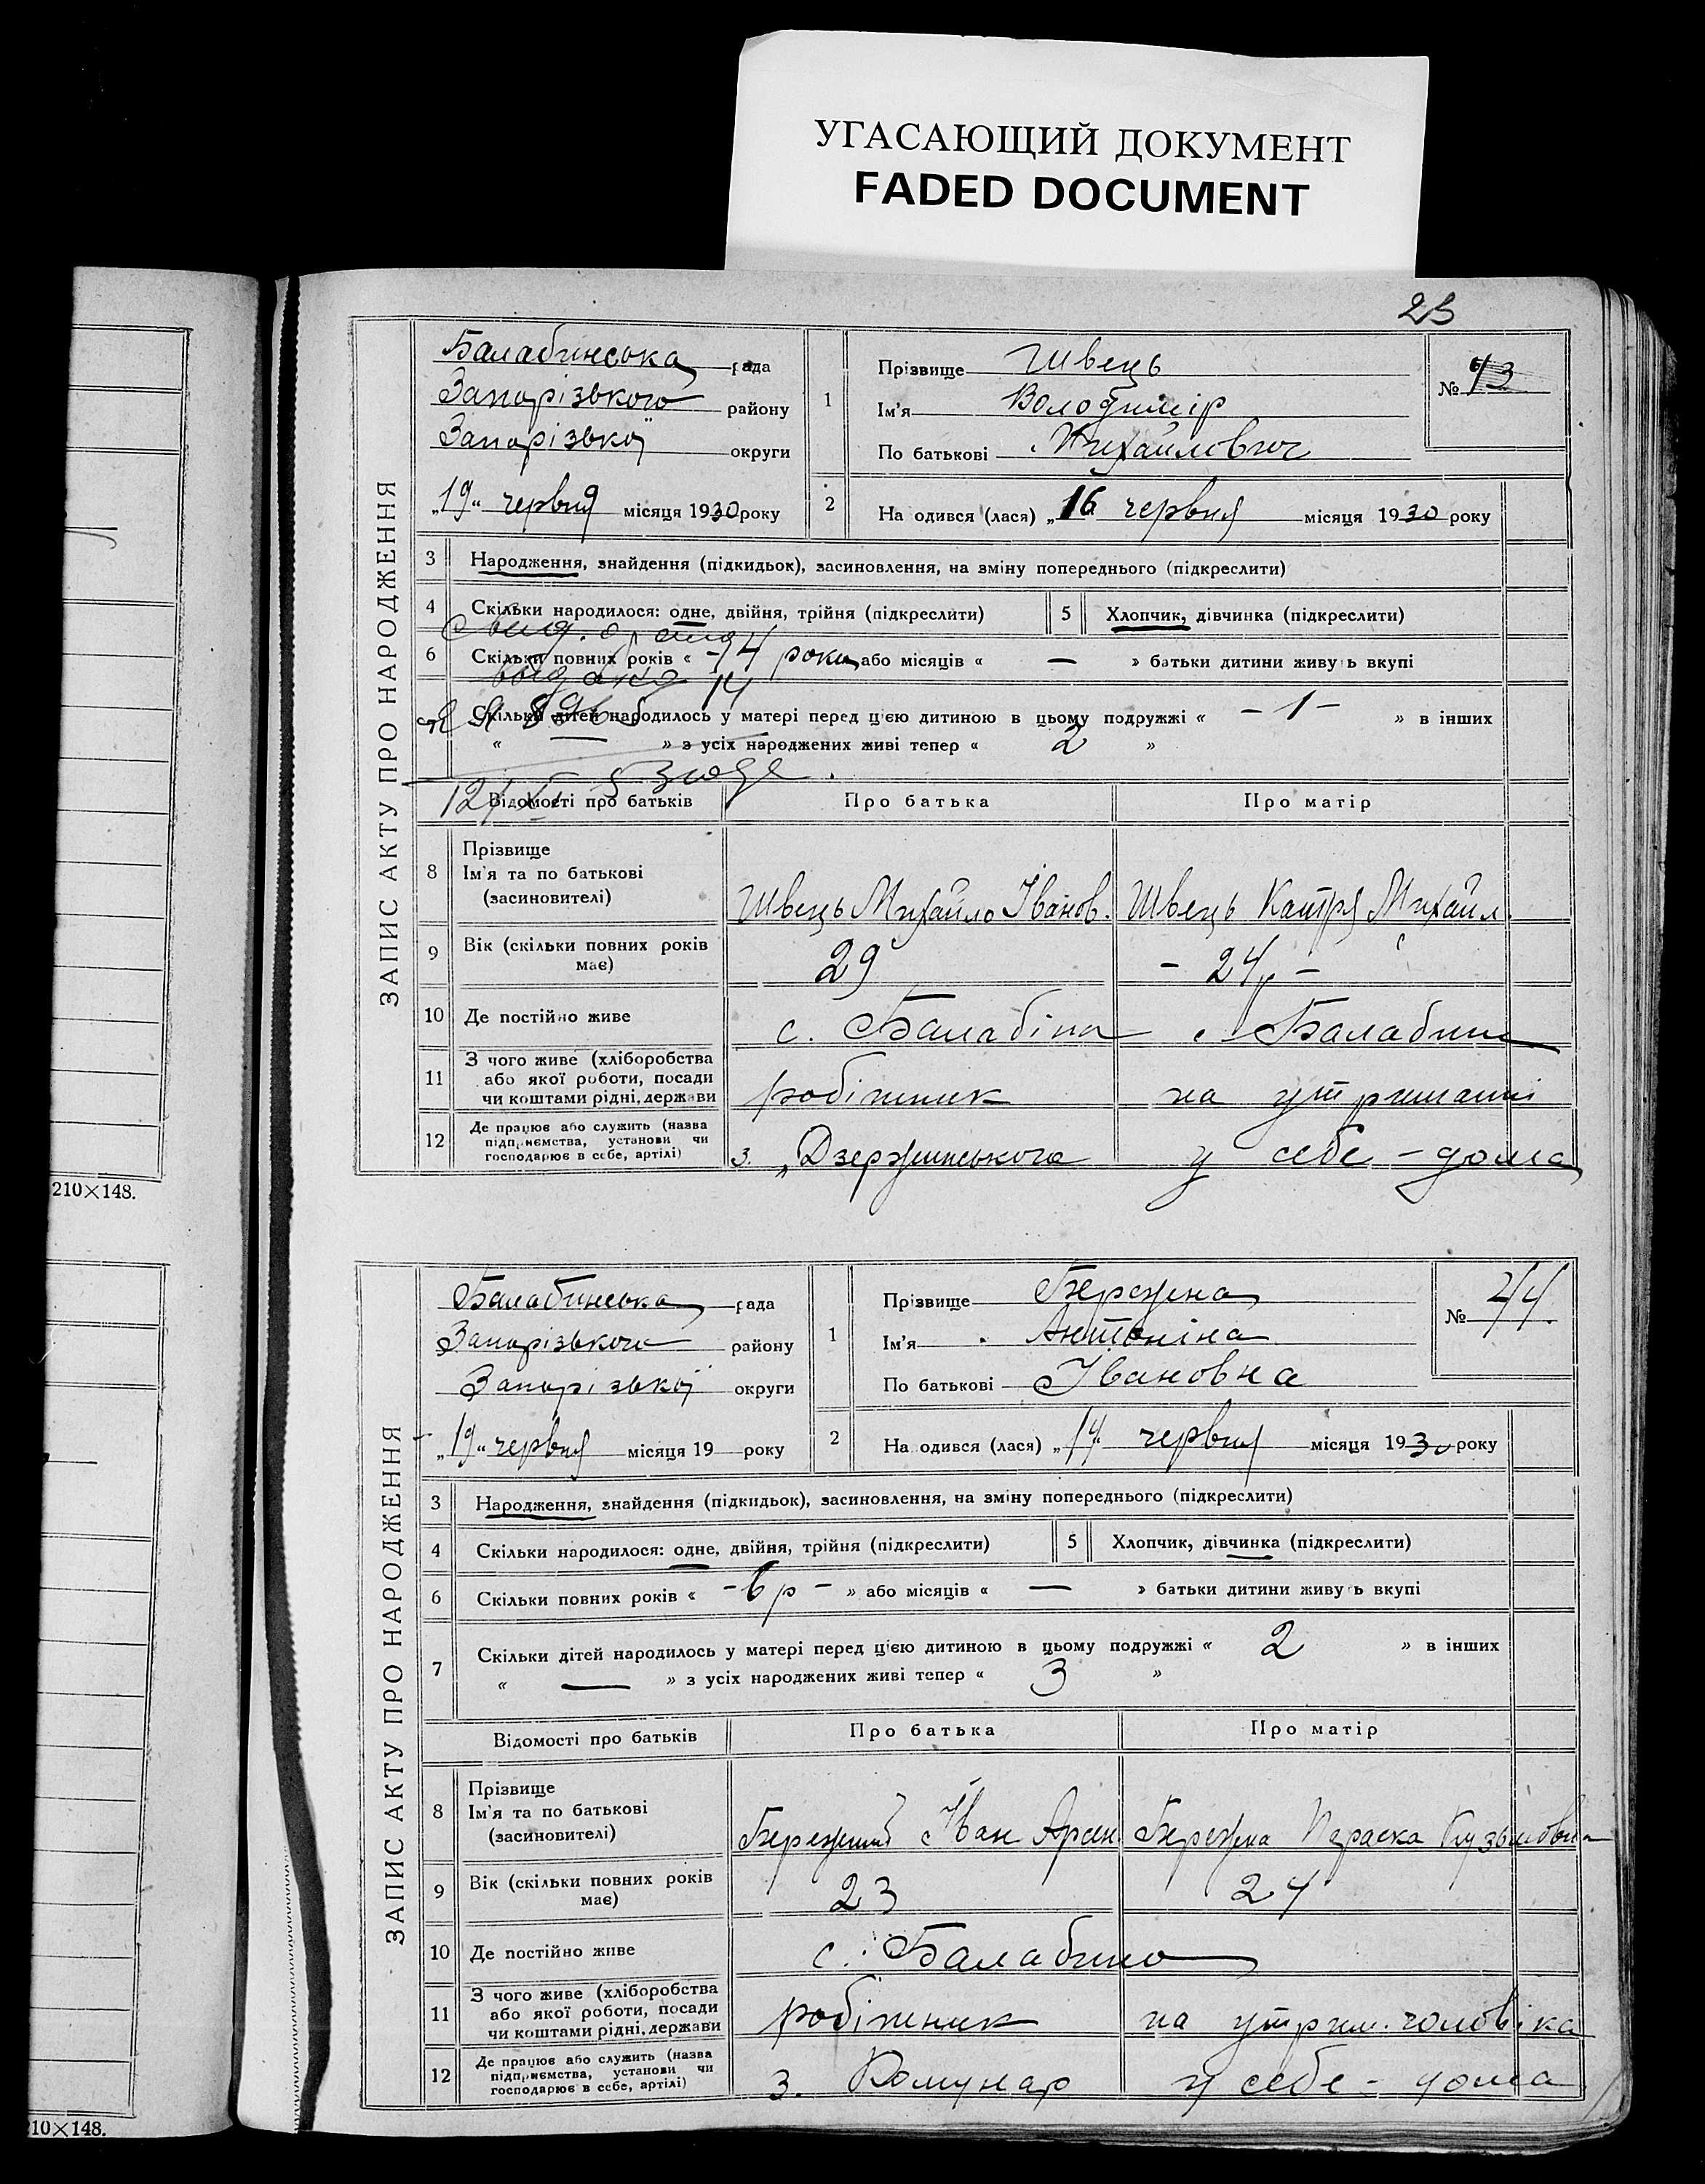 УГАСАЮЩИЙ ДОКУМЕНТ
FADED DOCUMENT
23
ЗАПИС АКТУ ПРО НАРОДЖЕННЯ
Балабинська рада
Запорізького району
Запорізької округи
„19“ червня місяця 1930 року
1 Прізвище Швець
Ім'я Володимір
По батькові Михайлович
№ 43
2 На одився (лася) „16 червня місяця 1930 року
3 Народження, знайдення (підкидьок), засиновлення, на зміну попереднього (підкреслити)
4 Скільки народилося: одне, двійня, трійня (підкреслити)
5 Хлопчик, дівчинка (підкреслити)
6 Скільки повних років « -14 роки або місяців « — » батьки дитини живу ь вкупі
Скільки дітей народилось у матері перед цією дитиною в цьому подружжі « - 1 - » в інших
« — » з усіх народжених живі тепер « 2 »
Відомості про батьків
Про батька
Про матір
8 Прізвище
Ім'я та по батькові
(засиновителі)
Швець Михайло Іванов. Швець Катря Михайл.
9 Вік (скільки повних років
має)
29 - 24р -
10 Де постійно живе
с. Балабіна с. Балабин
11 З чого живе (хліборобства
або якої роботи, посади
чи коштами рідні, держави
робітник на утриманні
12 Де працює або служить (назва
підприємства, установи чи
господарює в себе, артілі)
з. „Дзержинського у себе - дома
210×148.
ЗАПИС АКТУ ПРО НАРОДЖЕННЯ
Балабинська рада
Запорізького району
Запорізької округи
„19“ червня місяця 19 року
1 Прізвище Бережна
Ім'я Антоніна
По батькові Івановна
№ 44.
2 На одився (лася) „14“ червня місяця 1930 року
3 Народження, знайдення (підкидьок), засиновлення, на зміну попереднього (підкреслити)
4 Скільки народилося: одне, двійня, трійня (підкреслити)
5 Хлопчик, дівчинка (підкреслити)
6 Скільки повних років « - 6 р - » або місяців « — » батьки дитини живу ь вкупі
7 Скільки дітей народилось у матері перед цією дитиною в цьому подружжі « 2 » в інших
« — » з усіх народжених живі тепер « 3 »
Відомості про батьків
Про батька
Про матір
8 Прізвище
Ім'я та по батькові
(засиновителі)
Бережний Іван Арсен Бережна Параска Кузьмовна
9 Вік (скільки повних років
має)
23 24
10 Де постійно живе
с. Балабино
11 З чого живе (хліборобства
або якої роботи, посади
чи коштами рідні, держави
робітник на утрим. чоловіка
12 Де працює або служить (назва
підприємства, установи чи
господарює в себе, артілі)
з. Комунар у себе - дома
210×148.